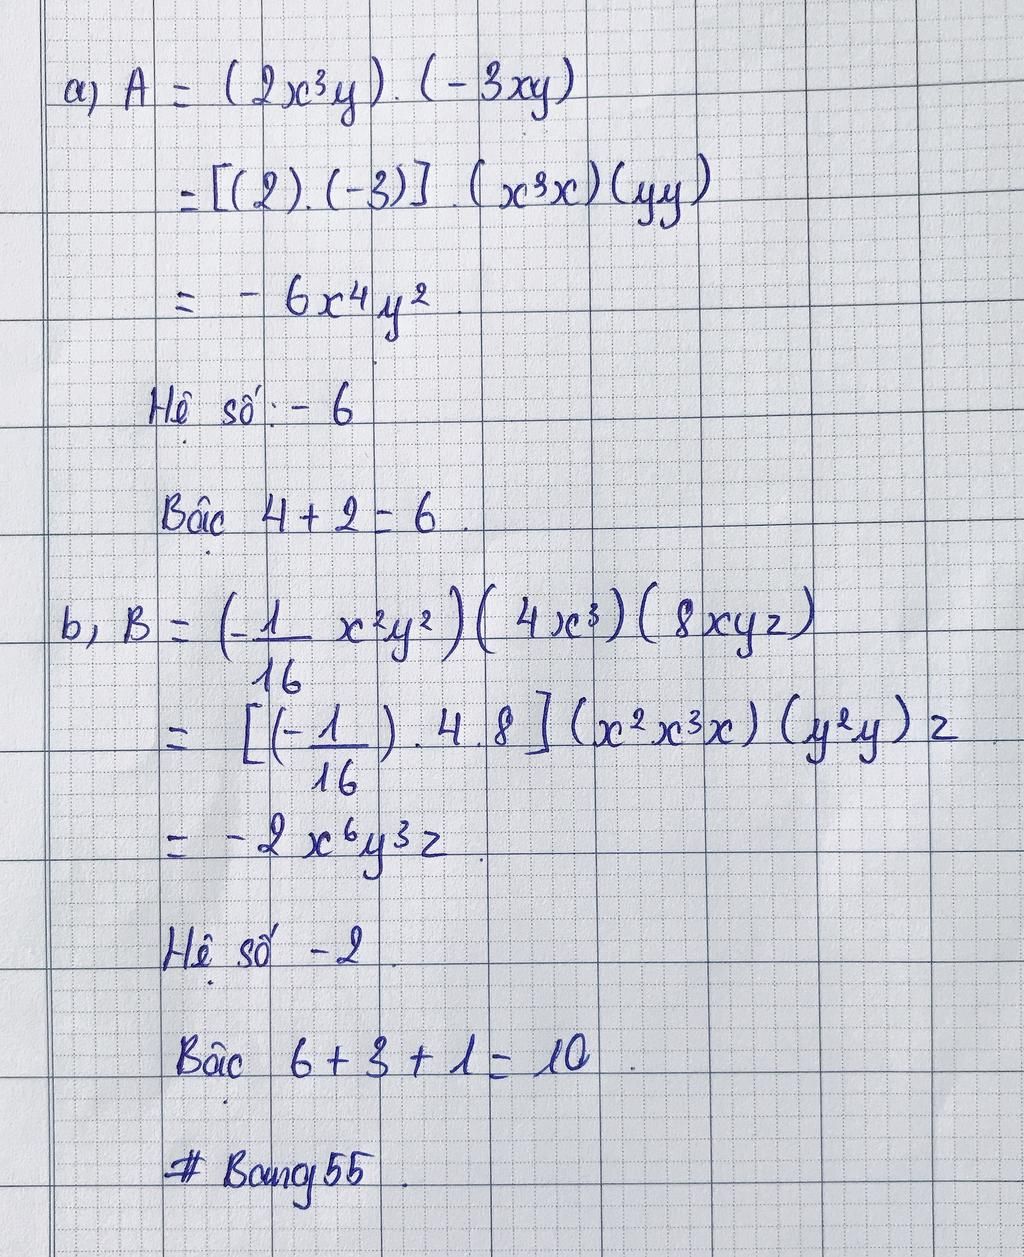 a, A = (2x³y).(-3xy)
= [(2).(-3)].(x³x)(yy)
= - 6x⁴y².
Hệ số: - 6
Bậc 4 + 2 = 6.
b, B = (-1/16 x²y²)(4x³)(8xyz)
= [(-1/16).4.8](x²x³x)(y²y)z
= -2x⁶y³z.
Hệ số -2.
Bậc 6 + 3 + 1 = 10.